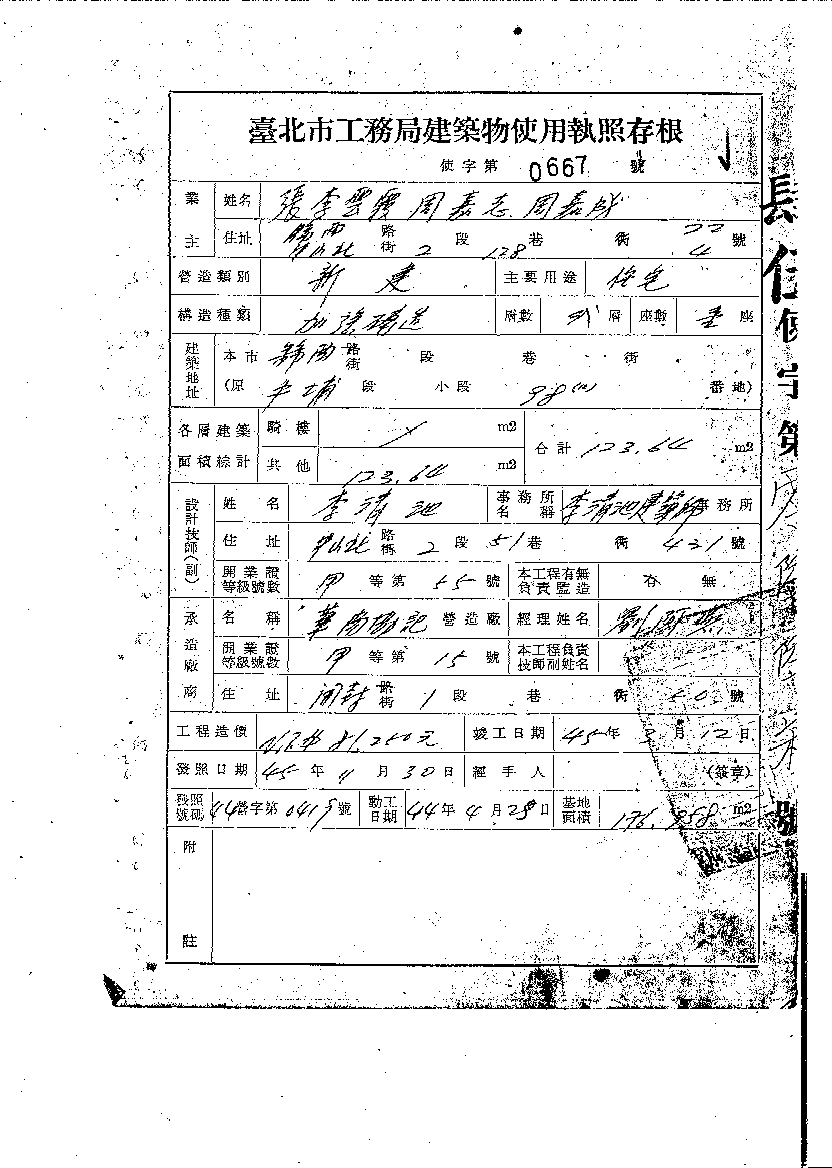 臺北市工務局建築物使用執照存根
使字第 0667 號
業主 姓名 張李雲霞 周嘉志 周嘉成
住址 中山北 路街 2 段 128 巷 衖 22 4 號
營造類別 新建 主要用途 住宅
構造種類 加強磚造 層數 層 座數 壹 座
建築地址 本市 路街 段 巷 衖
(原 段 小段 98 番地)
各層建築面積綜計 騎樓 m2 合計 123.64 m2
其他 123.64 m2
設計技師(副) 姓名 李清池 事務所名稱 李清池建築師事務所
住址 中山北 路街 2 段 51 巷 衖 431 號
開業證等級號數 甲 等第 55 號 本工程有無負責監造 有 無
承造廠商 名稱 華南協記 營造廠 經理姓名 劉
開業證等級號數 甲 等第 15 號 本工程負責技師副姓名
住址 開封 路街 1 段 巷 衖 50 號
工程造價 81,250元 竣工日期 45年 3 月 12 日
發照日期 45 年 11 月 30 日 經手人 (簽章)
發照號碼 44營字第 0419 號 動工日期 44年 4 月 28 日 基地面積 176.958 m2
附註
肆伍使字第
號